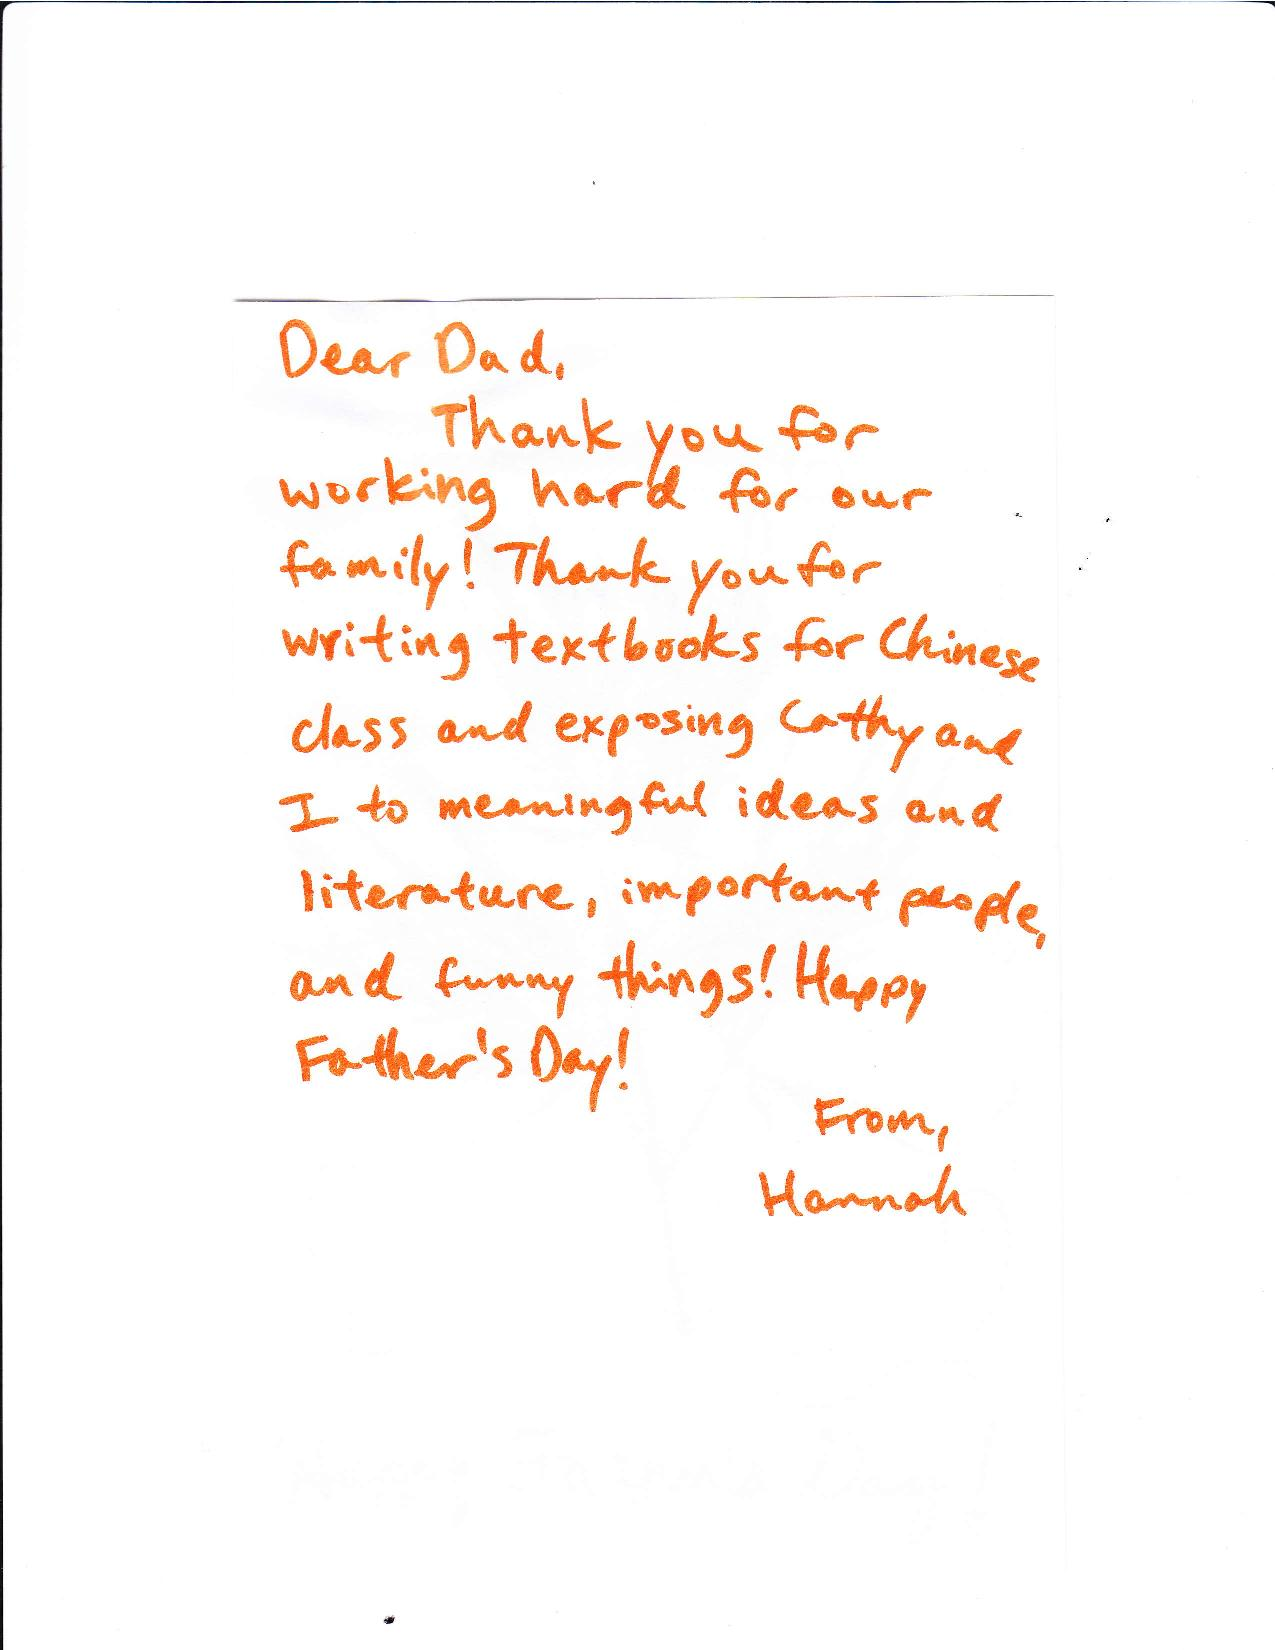 Dear Dad,
Thank you for
working hard for our
family! Thank you for
writing textbooks for Chinese
class and exposing Cathy and
I to meaningful ideas and
literature, important people,
and funny things! Happy
Father's Day!
From,
Hannah